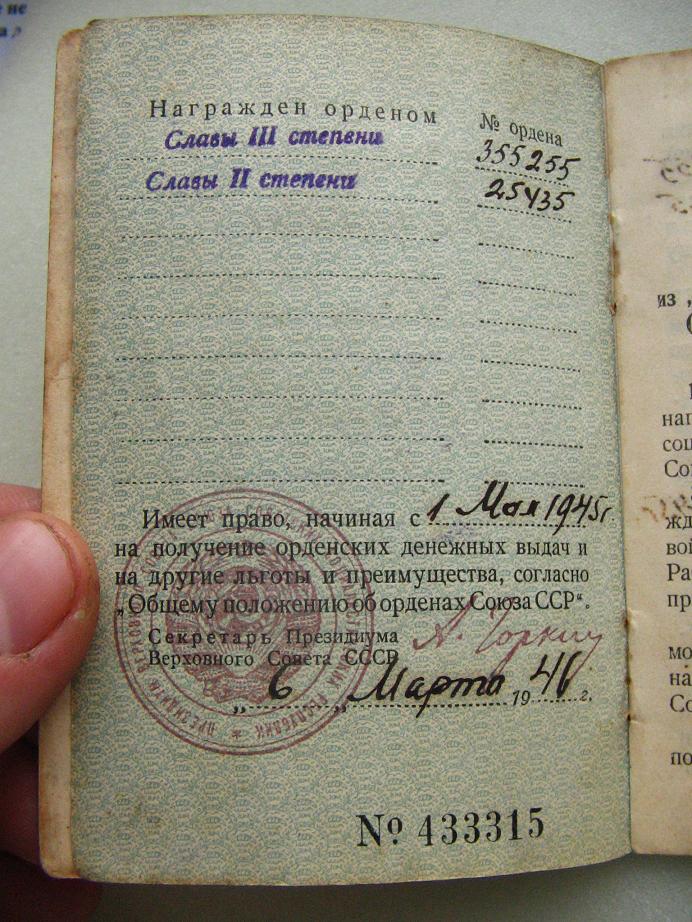 Награжден орденом
№ ордена
Славы III степени
355255
Славы II степени
25435
Имеет право, начиная с 1 Мая 1945г
на получение орденских денежных выдач и
на другие льготы и преимущества, согласно
„Общему положению об орденах Союза ССР“.
Секретарь Президиума
Верховного Совета СССР
А. Горкин
„ 6 „ Марта 1946 г.
№ 433315
из
наг
соц
Со
жд
вой
Ра
пр
мо
на
Со
по